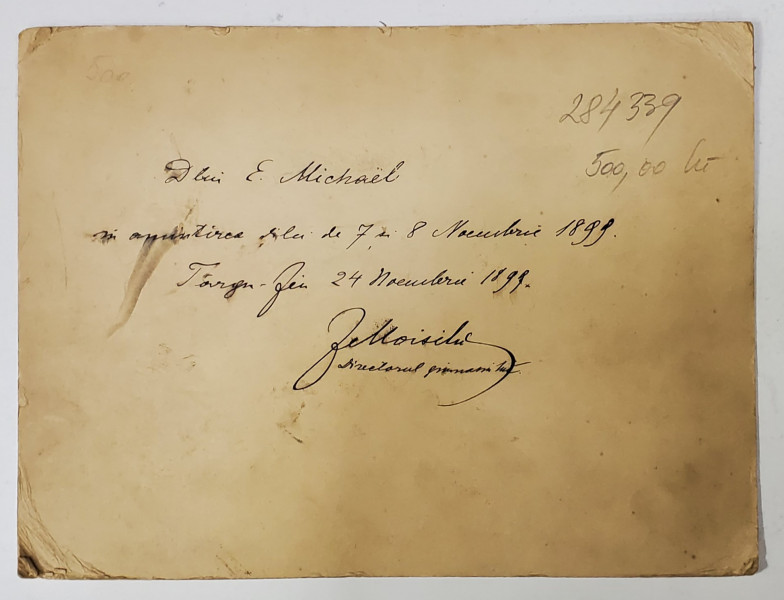 500
284339
500,00 lei
Dlui E. Michaël
in amintirea dilei de 7 si 8 Noembrie 1899.
Targu-Jiu 24 Noembrie 1899.
Moisilu
Directorul gimnasiului